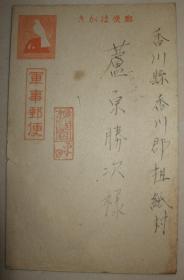 郵便はがき
軍事郵便
香川縣香川郡檀紙村
蘆原勝次様